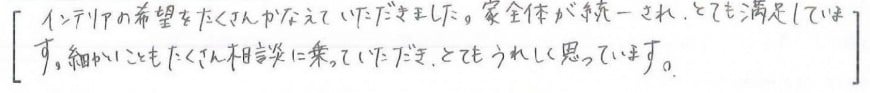 インテリアの希望をたくさんかなえていただきました。家全体が統一され、とても満足していま
す。細かいこともたくさん相談に乗っていただき、とてもうれしく思っています。